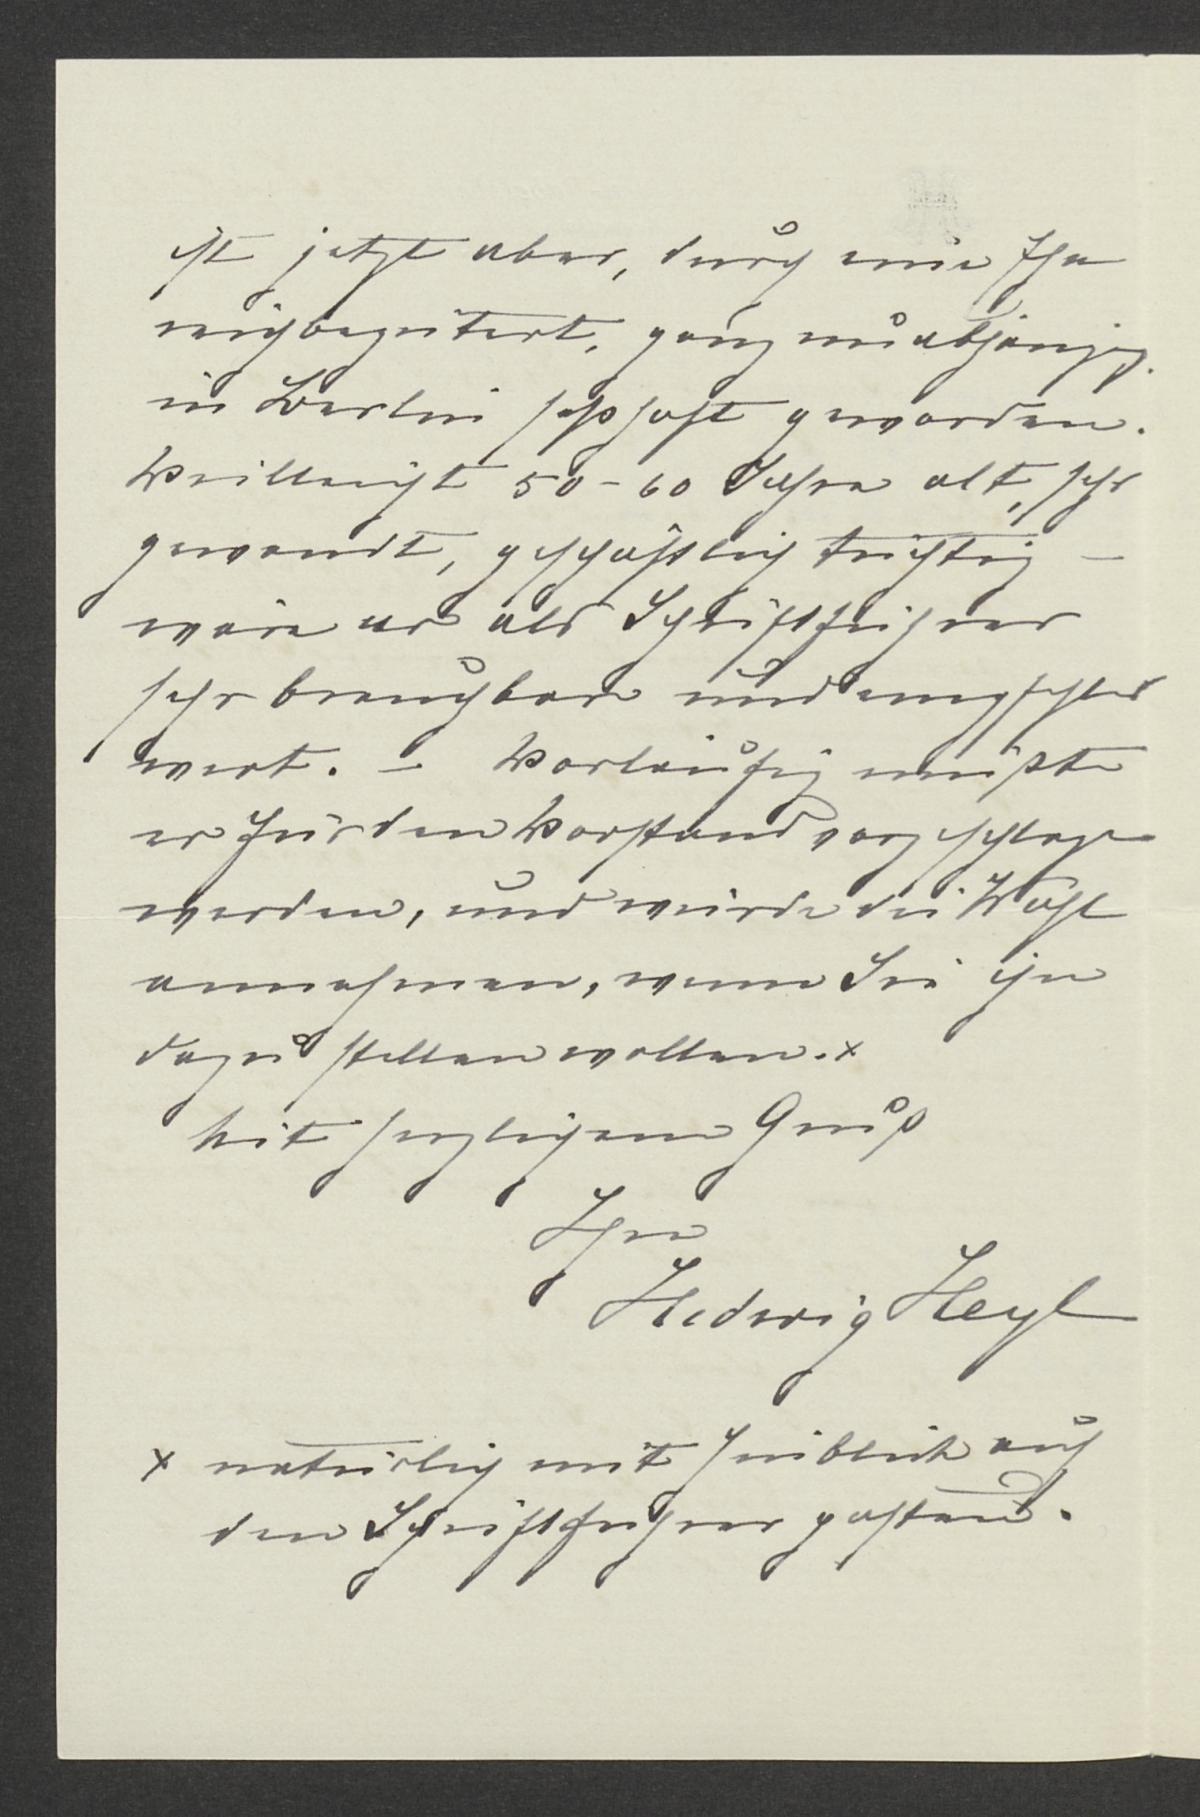 ist jetzt aber, durch eine Ehe
reichbegütert, ganz unabhängig
in Berlin seßhaft geworden.
Vielleicht 50-60 Jahre alt, sehr
gewandt, geschäftlich tüchtig –
wäre er als Schriftführer
sehr brauchbar und empfehlens
wert. – Vorläufig müßte
er für den Vorstand vorgeschlagen
werden, und würde die Wahl
annehmen, wenn Sie ihn
dazu stellen wollen. x
Mit herzlichem Gruß
Ihre
Hedwig Heyl
x natürlich mit Hinblick auf
den Schriftführerposten.